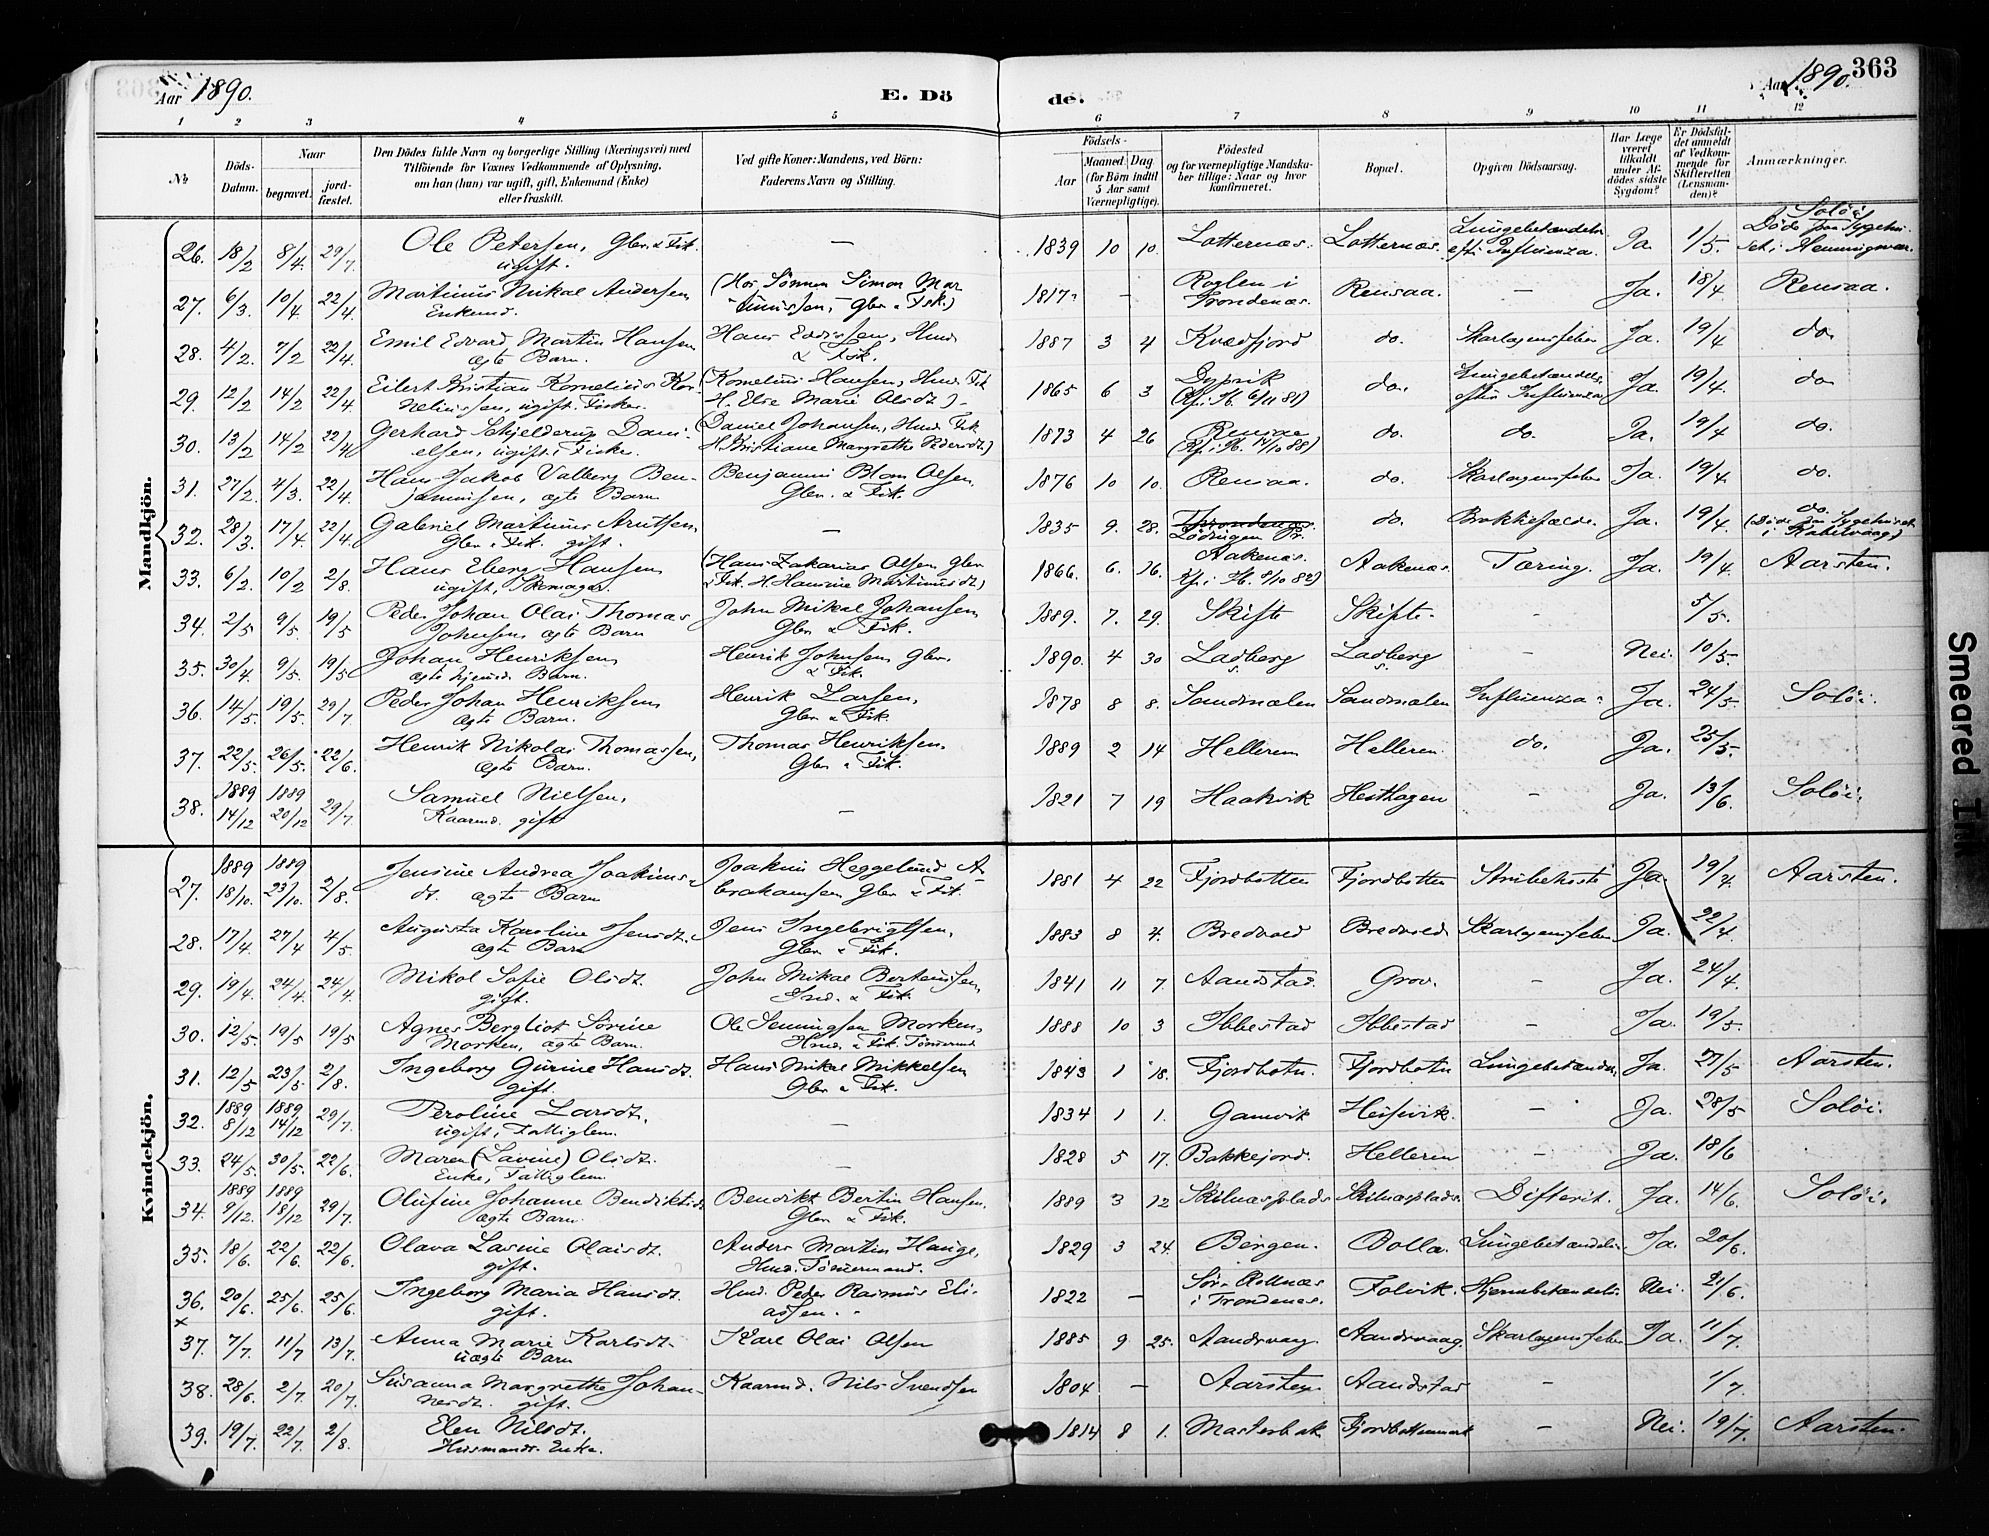 363
Aar 1890.
E. Dö
de.
Aar 1890.
1 2 3 4 5 6 7 8 9 10 11 12
No
Döds-Datum.
Naar
begravet.
jord-fæstet.
Den Dödes fulde Navn og borgerlige Stilling (Næringsvei) med
Tilföiende for Voxnes Vedkommende af Oplysning,
om han (hun) var ugift, gift, Enkemand (Enke)
eller fraskilt.
Ved gifte Koner: Mandens, ved Börn:
Faderens Navn og Stilling.
Födsels-
Aar
Maaned Dag
(for Börn indtil
5 Aar samt
Værnepligtige).
Födested
og for værnepligtige Mandska-
ber tillige: Naar og hvor
konfirmeret.
Bopæl.
Opgiven Dödsaarsag.
Har Læge
været
tilkaldt
under Af-
dödes sidste
Sygdom?
Er Dödsfal-
det anmeldt
af Vedkom-
mende for
Skifteretten
(Lensman-
den)?
Anmærkninger.
Mandkjön.
26. 18/2 8/4 29/7 Ole Petersen, Gbr. & Fisk. ugift. — 1839 10 10. Lotternæs. Lotternæs. Lungebetændelse eft. Influenza. Ja. 1/5. Soløi. Døde paa Sygehu- set i Henningsvær.
27. 6/3. 10/4 22/4. Martinus Mikal Andersen Enkemd. (Hos Sønnen Simon Mar- tinussen, Gbr. & Fisk.) 1817 — i Trondenæs. Rensaa. — Ja. 18/4 Rensaa.
28. 4/2. 7/2 22/4. Emil Edvard Martin Hansen ægte Barn. Hans, Husmd. & Fisk. 1887 3 4 Kvædfjord do. Skarlagensfeber Ja. 19/4 do.
29. 12/2 14/2 22/4 Eilert Kristian Kornelius Kor- neliussen, ugift. Fisker. (Kornelius Hansen, Husm. Fisk H. Else Marie Olsdt.) 1865 6 3 Dyrvik (Kfi. Ib. 6/11 81) do. Lungebetændelse efter Influenza Ja. 19/4. do
30. 13/2 14/2 22/4 Gerhard Schjelderup Dani- elsen, ugift, Fisker. (Daniel Johansen, Husm. Fisk H. Kristiane Margrethe Pedersdt.) 1873 4 26 Rensaa (Kfi. Ib. 14/10 88) do. do. Ja. 19/4 do.
31. 27/2 4/3. 22/4. Hans Jakob Valberg Ben- jaminsen, ægte Barn Benjamin Blom Olsen, Gbr. & Fisk. 1876 10 10. Rensaa. do. Skarlagensfeber Ja. 19/4 do.
32. 28/3. 17/4. 22/4. Gabriel Martinus Arntsen, Gbr. & Fisk. gift. — 1835 9. 28. Trondenæs. Lødingen Pr. do. Brokkefælde. Ja. 19/4. do. (Døde paa Sygehuset i Kabelvaag)
33. 6/2 10/2 2/8 Hans Eberg Hansen ugift, Skomager. (Hans Zakarias Olsen Gbr. & Fisk. H. Hansine Martinusdt.) 1866. 6. 16. Aakenæs. Kfi. Ib. 8/10 82) Aakenæs. Tæring. Ja. 19/4. Aarsten.
34. 2/5 9/5. 19/5 Peder Johan Olai Thomas Johnsen ægte Barn John Mikal Johansen Gbr. & Fisk. 1889. 7. 29. Skifte Skifte. — 5/5.
35. 30/4. 9/5. 19/5 Johan Henriksen, ægte hjemd. Barn. Henrik Johnsen Gbr. & Fisk. 1890. 4 30 Ladberg Ladberg — Nei. 10/5.
36. 14/5. 19/5. 29/7 Peder Johan Henriksen ægte Barn. Henrik Larsen, Gbr. & Fisk. 1878 8 8. Sandmælen Sandmælen Influenza Ja. 24/5. Soløi.
37. 22/5. 26/5. 22/6. Henrik Nikolai Thomassen, ægte Barn. Thomas Henriksen, Gbr. & Fisk. 1889 2 14 Helleren Helleren do. Ja. 25/5.
38. 1889 14/12 1889 20/12 29/7. Samuel Nielsen, Kaarmd. gift — 1821 7 19 Haakvik Hesthagen — Ja. 13/6. Soløi.
Kvindekjön.
27. 1889 18/10. 1889 23/10. 2/8. Jensine Andrea Joakims- dt. ægte Barn Joakim Heggelund A- brahamsen Gbr. & Fisk. 1881 4 22 Fjordbotten Fjordbotten Strubehoste Ja. 19/4. Aarsten.
28. 17/4. 27/4 4/5 Augusta Karoline Jensdt. ægte Barn Jens Ingebrigtsen, Gbr. & Fisk. 1883 8 4. Bredvold Bredvold Skarlagensfeber Ja. 22/4.
29. 19/4. 24/4. 24/4. Mikol Sofie Olsdt. gift. John Mikal Berteussen, Ind. & Fisk. 1841 11 7. Aandstad. Grov. Ja. 24/4.
30. 12/5. 19/5 19/5 Agnes Bergliot Sørine Morken, ægte Barn. Ole Henningsen Morken, Husmd. & Fisk. Tømmermd 1888 10 3 Ibbestad Ibbestad — Ja. 19/5.
31. 12/5 23/5 2/8. Ingeborg Gurine Hansdt. gift. Hans Mikal Mikkelsen Gbr. & Fisk. 1843 1 18. Fjordbotn. Fjordbotn Lungebetændelse Ja. 27/5 Aarsten.
32. 1889 8/12 1889 14/12 29/7. Peroline Larsdt. ugift, Fattiglem. — 1834 1 1. Gamvik Heisevik. — Ja. 28/5 Soløi.
33. 24/5. 30/5. 22/6. Maren (Lavine) Olsdt. Enke, Fattiglem. — 1828 5 17. Bakkejord. Helleren — Ja. 18/6
34. 1889 9/12. 1889 18/12 29/7. Olufine Johanne Bendiktsdt. ægte Barn. Bendikt Bertin Hansen, Gbr. & Fisk. 1889 3 12 Skilnæsplads Skilnæsplads. Difterit. Ja. 14/6. Soløi.
35. 18/6. 22/6. 22/6. Olava Lasine Olaisdt. gift. Anders Martin Hauge, Husmd. Tømmermand. 1829 3 24. Bergen. Bolla. Lungebetændelse Ja. 20/6.
36. x 20/6. 25/6. 25/6 Ingeborg Maria Hansdt. gift. Husmd. Peder Rasmus Eli- assen. 1822 — Sør-Rollnæs i Trondenæs. Folvik. Hjernebetændelse Nei. 21/6.
37. 7/7. 11/7 13/7. Anna Marie Karlsdt. uægte Barn Karl Olai Olsen 1885 9 25. Aandsvaag. Aandsvaag. Skarlagensfeber Ja. 11/7
38. 28/6. 2/7. 20/7. Susanna Margrethe Johan- nesdt. gift. Kaarmd. Nils Svendsen 1804 — Aarsten. Aandstad — 1/7.
39. 19/7. 22/7. 2/8. Elen Nilsdt. Husmands Enke. 1814 8 1. Masterbak Fjordbottenmark — Nei. 19/7. Aarsten.
Smeared Ink